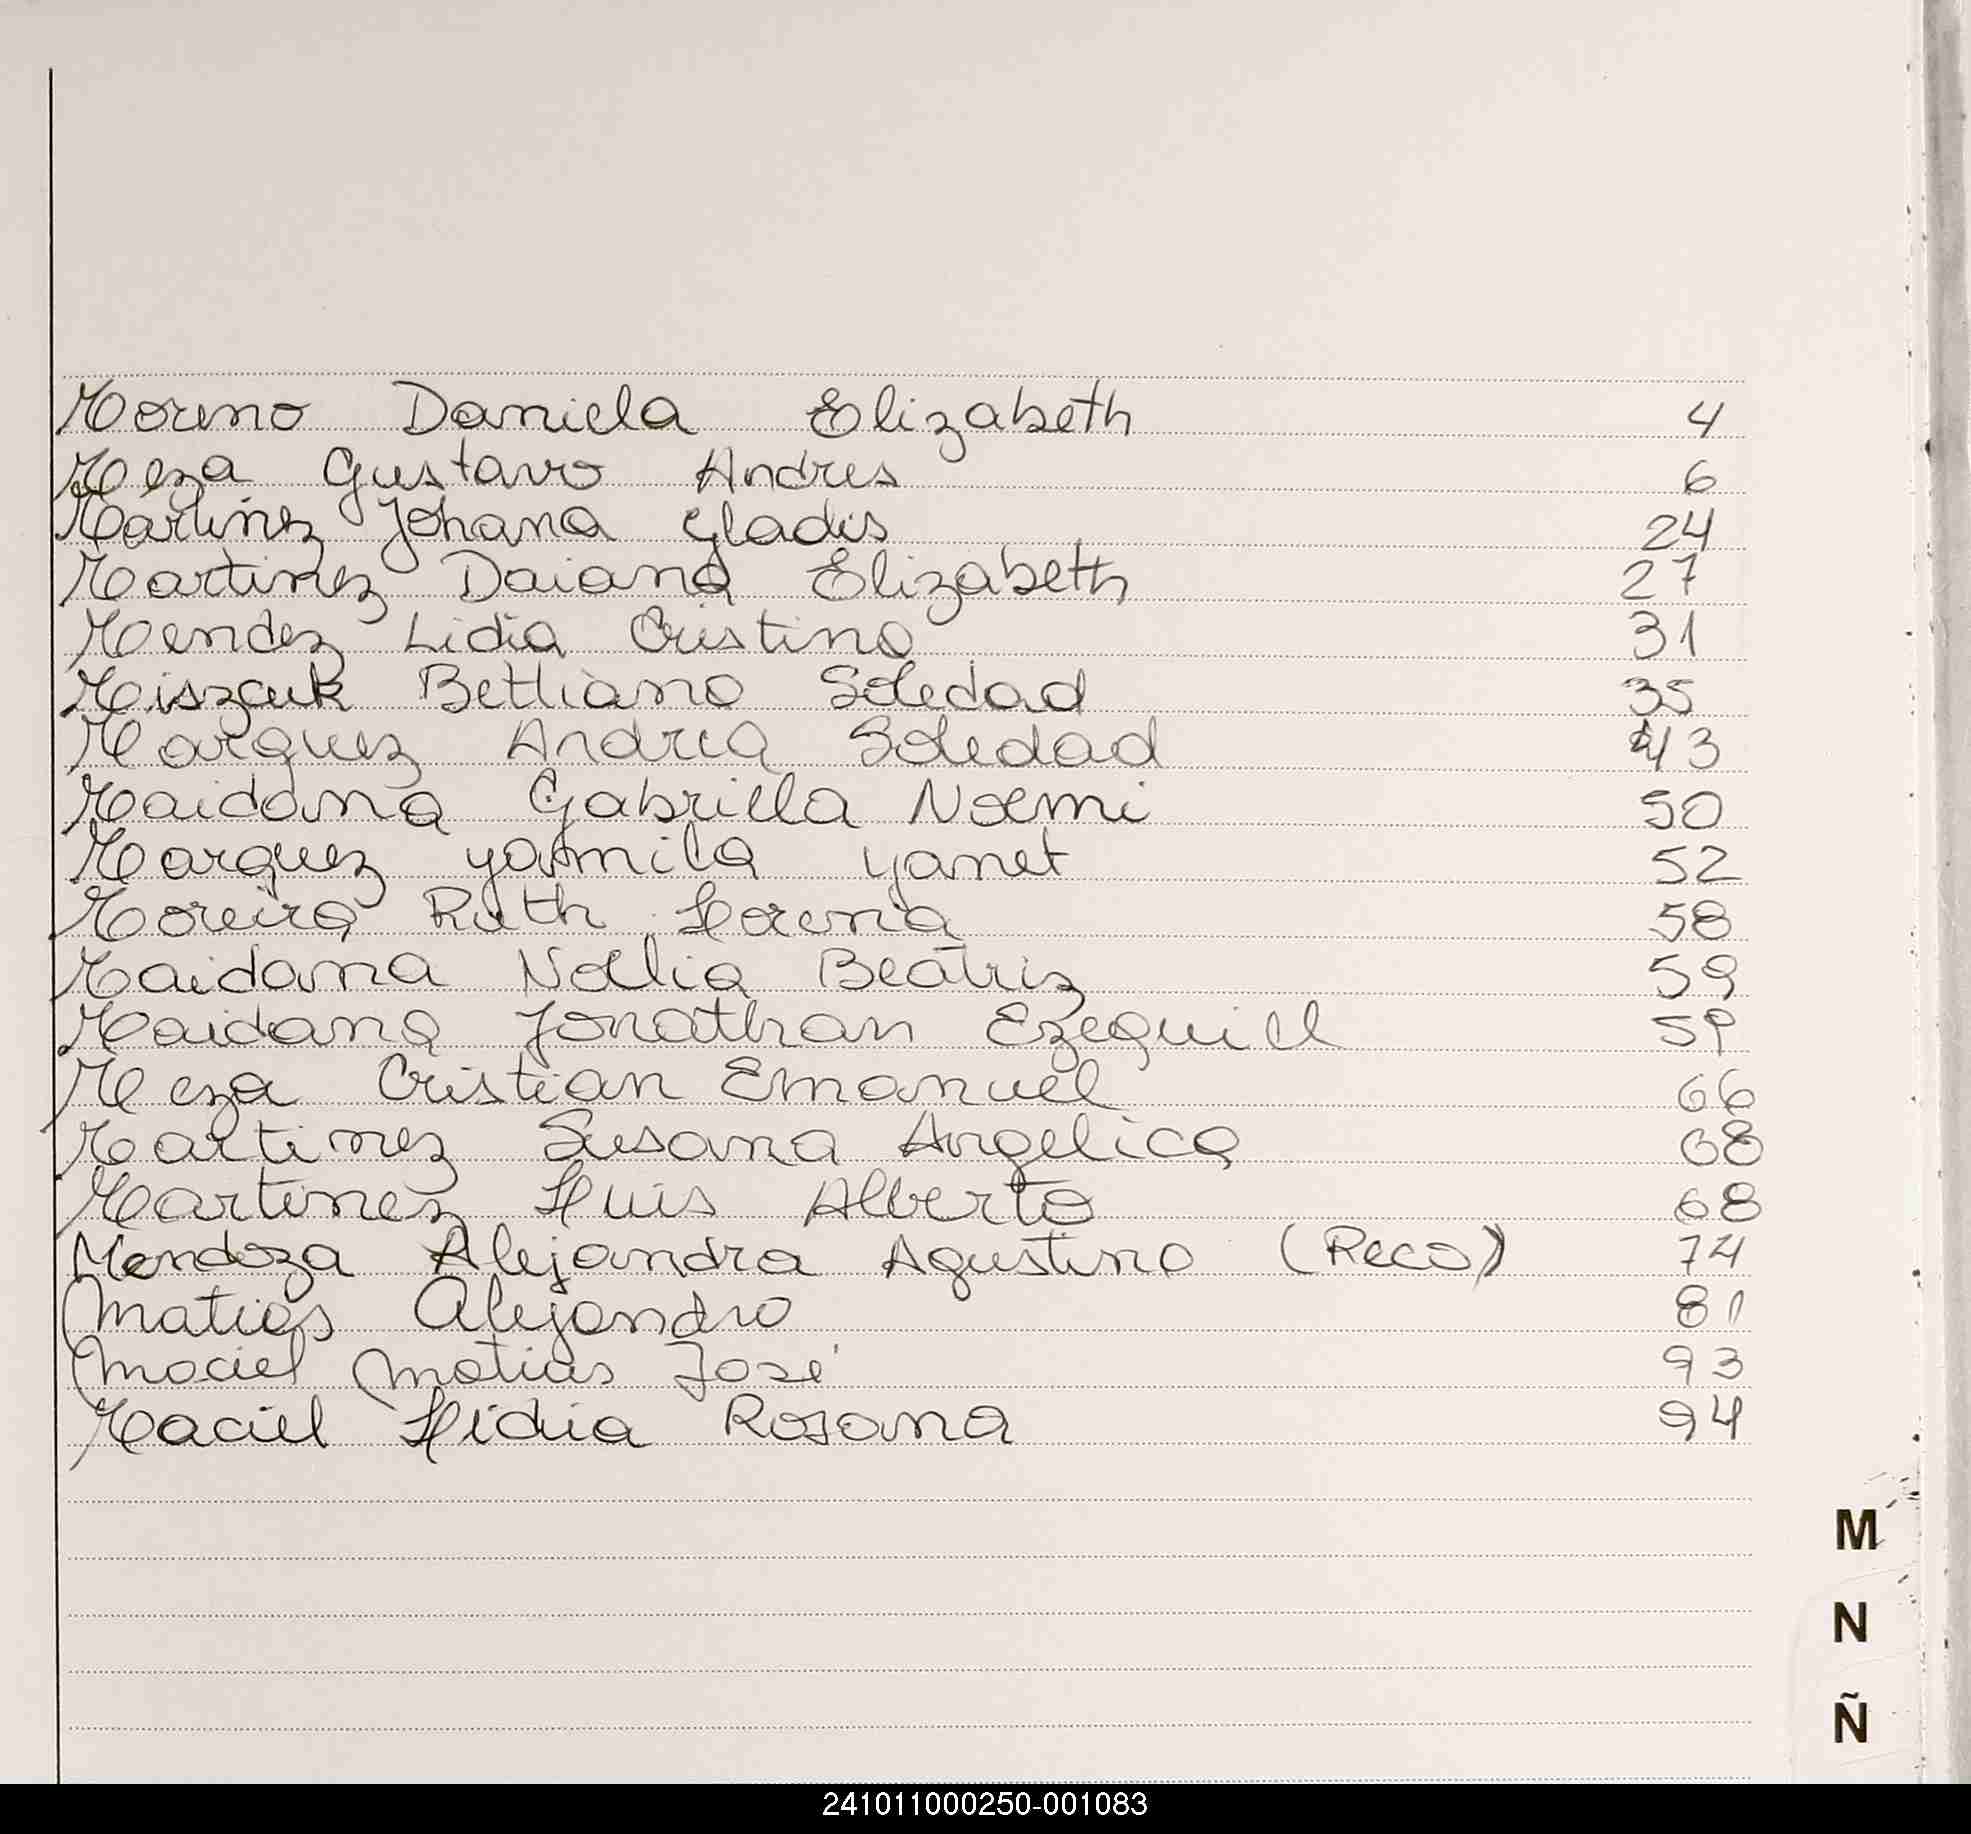 Moreno Daniela Elizabeth 4
Meza Gustavo Andres 6
Martinez Johana Gladis 24
Martinez Daiana Elizabeth 27
Mendez Lidia Cristina 31
Miszcuk Bettiana Soledad 35
Marquez Andrea Soledad 43
Maidana Gabriela Noemi 50
Marquez Yamila Yanet 52
Moreira Ruth Lorena 58
Maidana Noelia Beatriz 59
Maidana Jonathan Ezequiel 59
Meza Cristian Emanuel 66
Martinez Susana Angelica 68
Martinez Luis Alberto 68
Mendoza Alejandra Agustina (Reco) 74
Matias Alejandro 81
Maciel Matias José 93
Maciel Lidia Rosana 94
M
N
Ñ
241011000250-001083